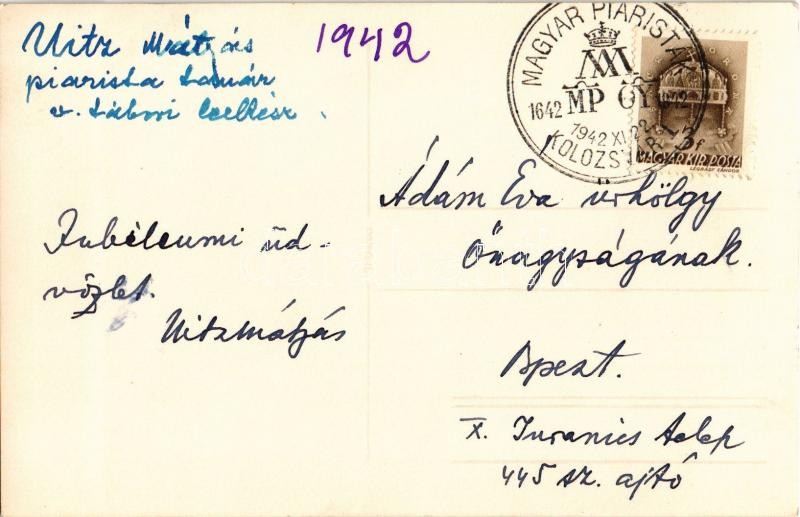 Uitz Mátyás
piarista tanár
v. tábori lelkész.
1942
MAGYAR PIARISTÁK
1642 MP GY 1942
1942 XI. 22
KOLOZSVÁR
3f
MAGYAR KIR. POSTA
LÉGRÁDY SÁNDOR
Ádám Eva úrhölgy
Őnagyságának.
Jubileumi üd-
vözlet.
Uitz Mátyás
Bpest.
X. Juranics telep
445 sz. ajtó